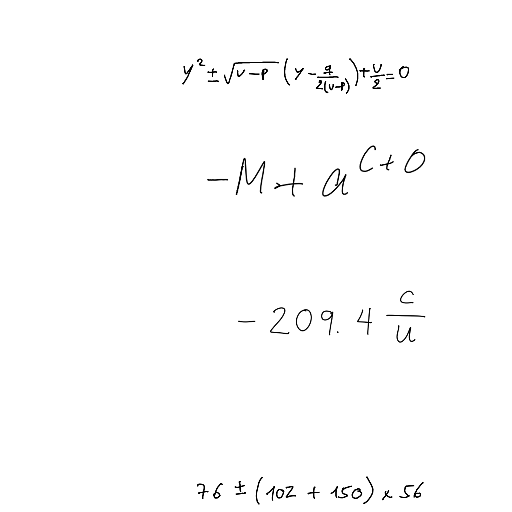 y² ± √(v-p) (y - q/(2(v-p))) + v/2 = 0
-M + a^{C+0}
-209.4 c/u
76 ± (102 + 150) × 56